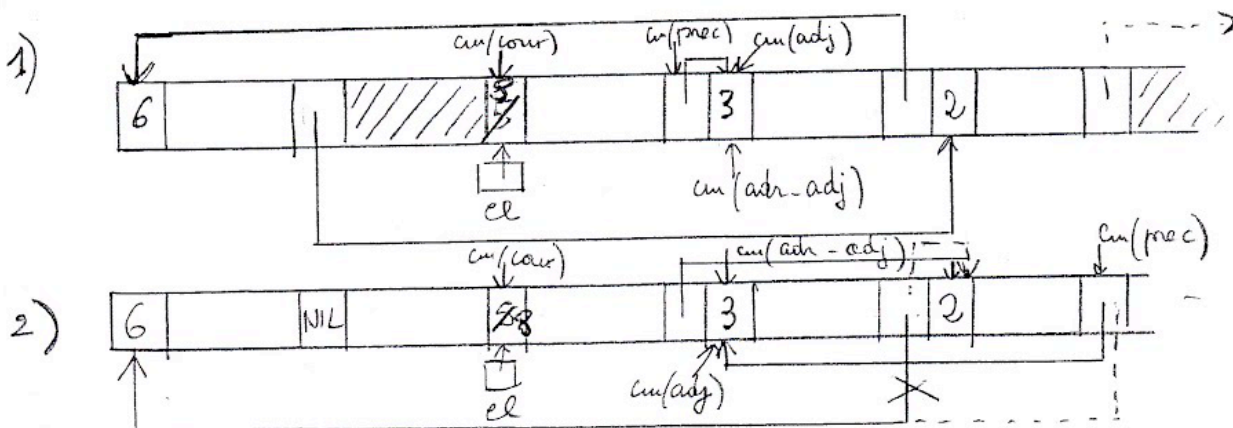 1)
cm(cour) cm(prec) cm(adj)
6 3 2
el cm(adr-adj)
cm(cour) cm(adr-adj) cm(prec)
2) 6 NIL 8 3 2
el cm(adj)